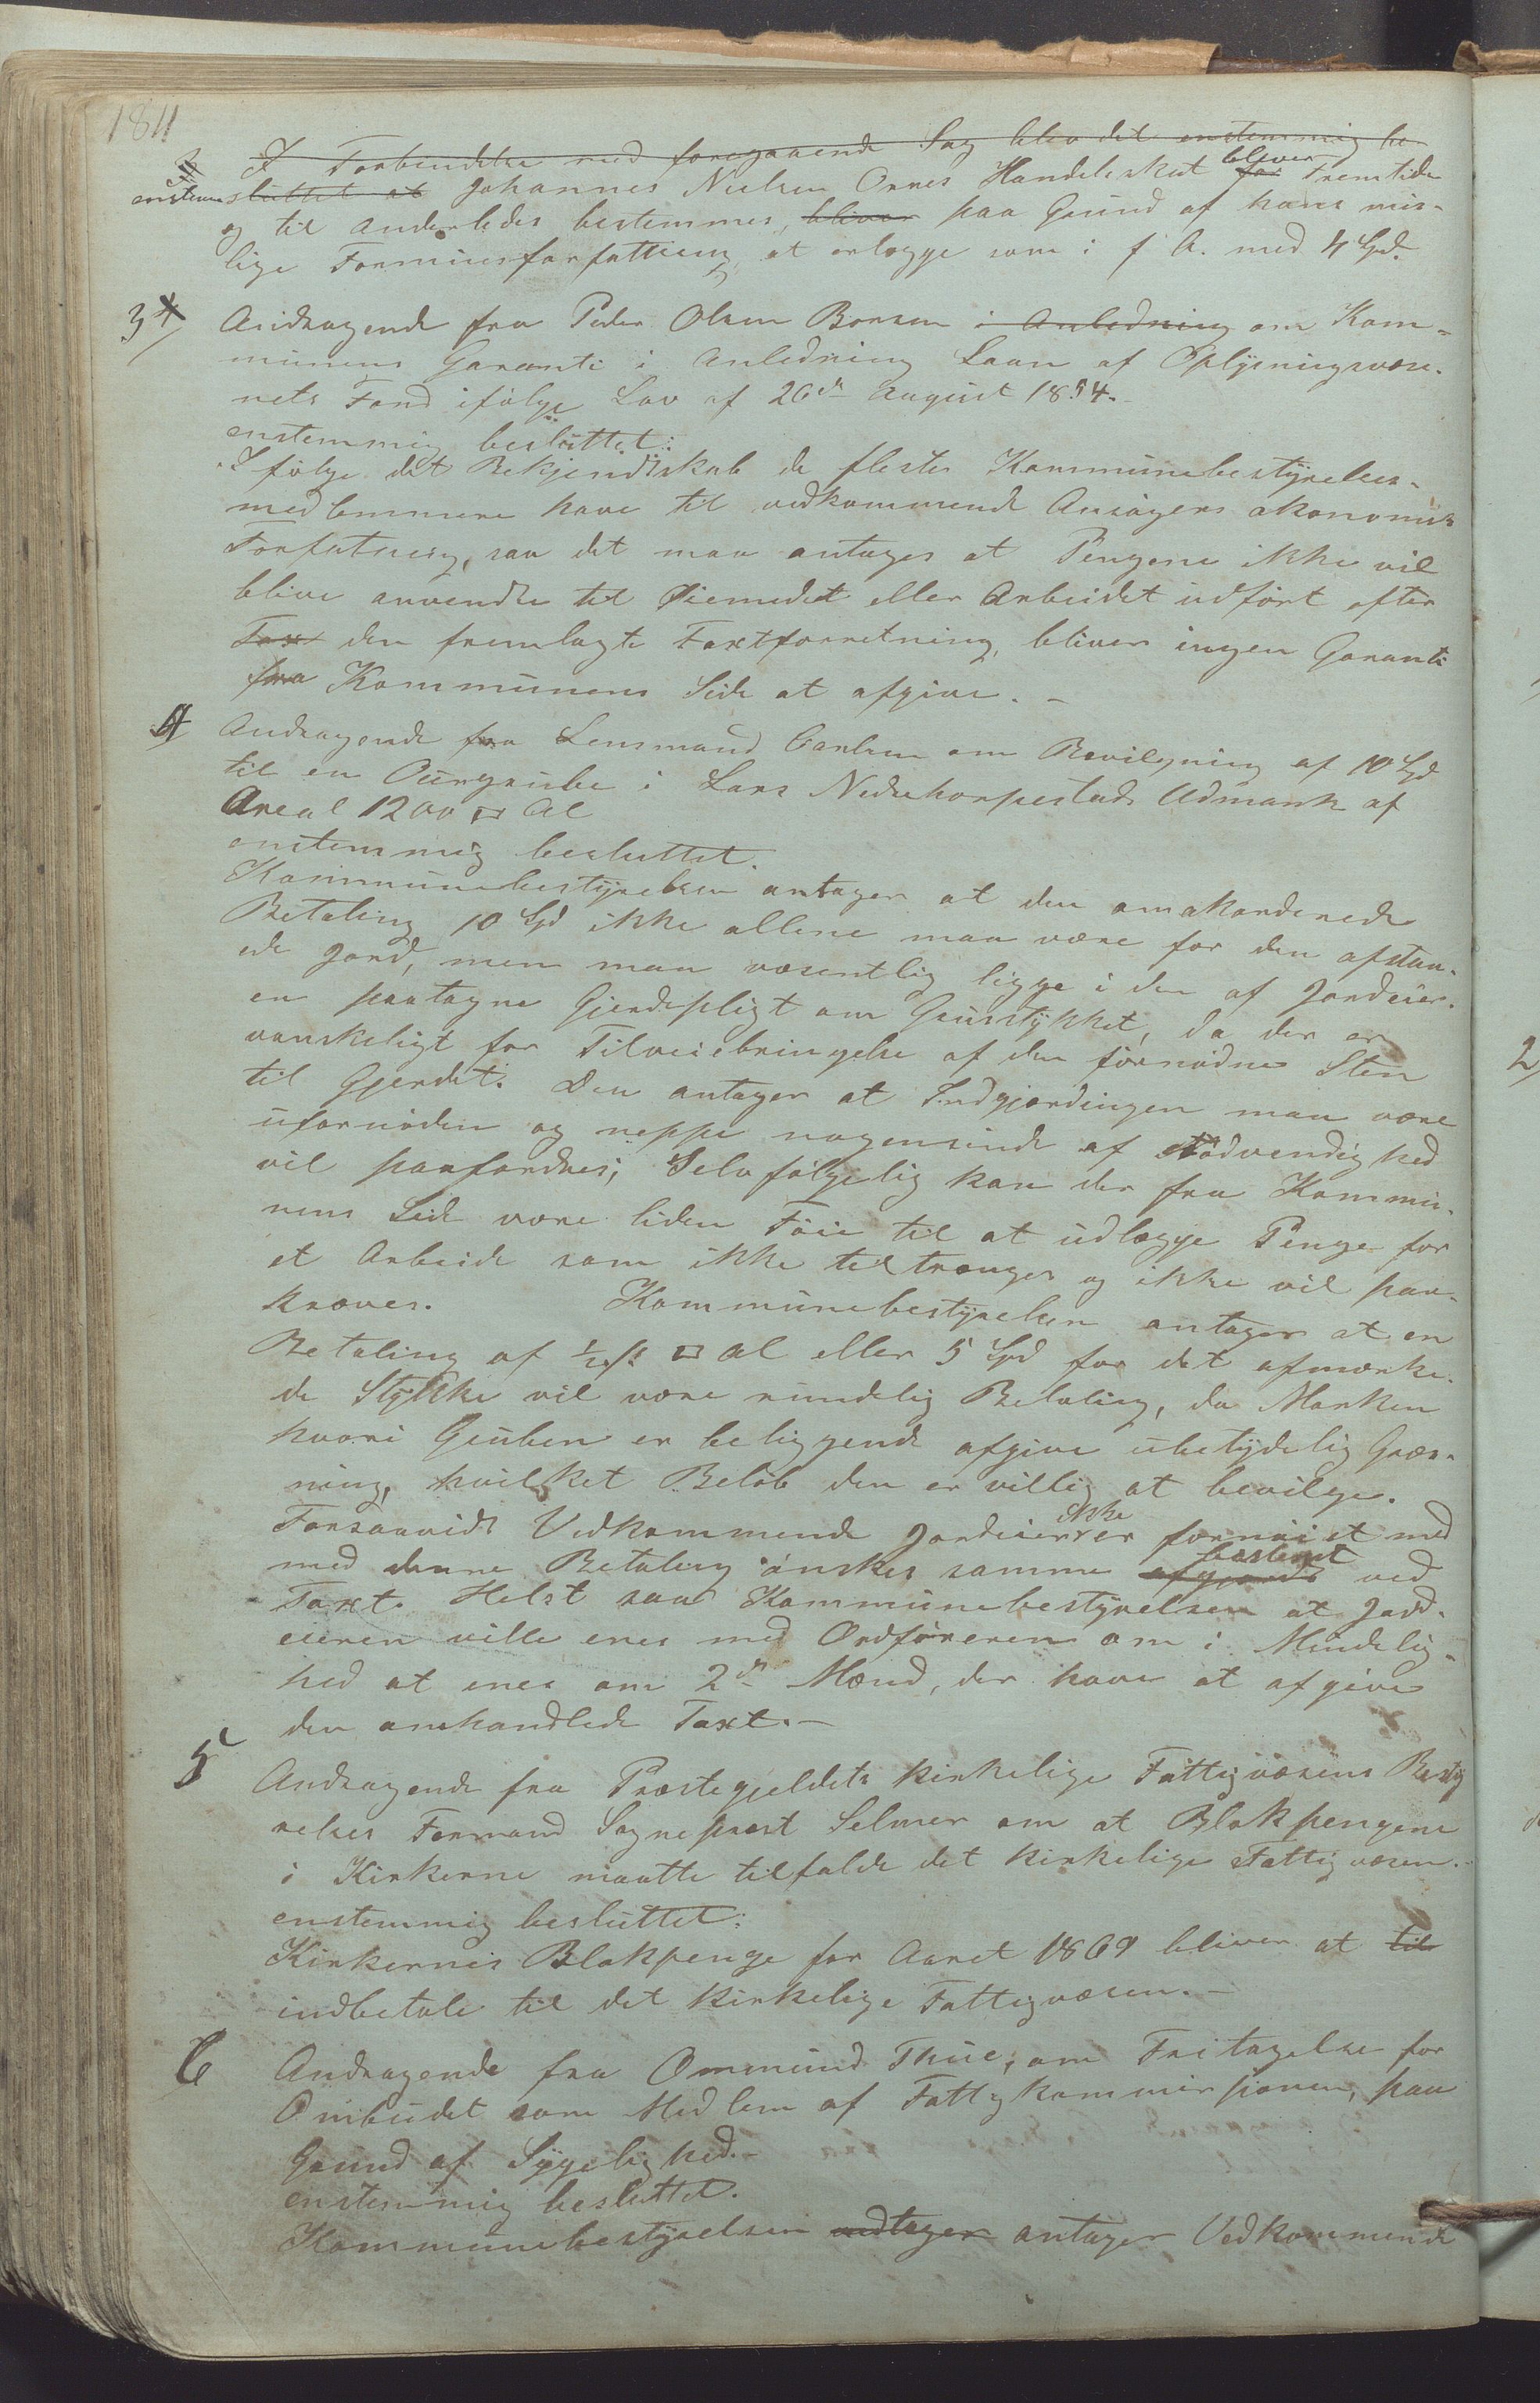 184
I Forbindelse med foregaaende Sag blev det enstemmig be-
enstem sluttet at Johannes Nielsen Orres Handelsskat bliver for Fremtiden
og til anderledes bestemmes, bliver paa Grund af hans mis-
lige Formuesforfatning at erlægge som i f A. med 4 Spd.
3 Andragende fra Peder Olsen Borsen i Anledning om Kom-
munens Garanti i Anledning Laan af Oplysningsvæse-
nets Fond ifølge Lov af 26de August 1854.
enstemmig besluttet:
I følge det Bekjendtskab de fleste Kommunebestyrelses-
medlemmere have til vedkommende Ansøgers økonomiske
Forfatning, saa det maa antages at Pengene ikke vil
blive anvendte til Øiemedet eller Arbeidet udført efter
Taxt den fremlagte Taxtforretning, bliver ingen Garanti
fra Kommunens Side at afgive. -
4 Andragende fra Lensmand Carlsen om Bevilgning af 10 Spd
til en Gruegrube i Lars Nedrehorpestads Udmark af
Areal 1200 □ Al
enstemmig besluttet.
Kommunebestyrelsen antager at den omakorderede
Betaling 10 Spd ikke allene maa være for den afstaa-
ede Jord, men maa væsentlig ligge i den af Jordeier-
en paatagne Gjerdepligt om Gruusstykket, da der er
vanskeligt for Tilveiebringelse af den fornødne Sten
til Gjerdet. Den antager at Indgjærdingen maa være
ufornøden og neppe nogensinde af Nødvendighed
vil paafordres; Selvfølgelig kan der fra Kommu-
nens Side være liden Føie til at udlægge Penge for
et Arbeide som ikke tiltrænges og ikke vil paa-
kræves. Kommunebestyrelsen antager at en
Betaling af ½ s □ Al eller 5 Spd for det afmærke-
de Stykke vil være rundelig Betaling, da Marken
hvori Gruben er beliggende afgive ubetydelig Græs-
ning, hvilket Beløb den er villig at bevilge.
Forsaavidt Vedkommende Jordeier ikke er fornøiet med
med denne Betaling ønskes samme afgjordt bestemt ved
Taxt. Helst saa Kommunebestyrelsen at Jord-
eieren ville enes med Ordføreren om i Mindelig-
hed at enes om 2de Mænd, der have at afgive
den omhandlede Taxt. -
5 Andragende fra Præstegjeldets kirkelige Fattigvæsens Besty
relses Formand Sogneprest Selmer om at Blokpengene
i Kirkerne maatte tilfalde det kirkelige Fattigvæsen. -
enstemmig besluttet:
Kirkernes Blokpenge for Aaret 1869 bliver at til
indbetale til det kirkelige Fattigvæsen. -
6 Andragende fra Ommund Thue, om Fritagelse for
Ombudet som Medlem af Fattigkommissionen, paa
Grund af Sygelighed. -
enstemmig besluttet.
Kommunebestyrelsen vedtager antager Vedkommende
2